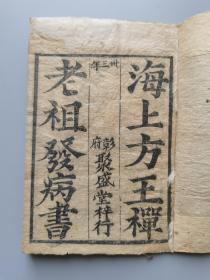 海上方王禪
卅三年
彭府聚盛堂梓行
老祖發病書